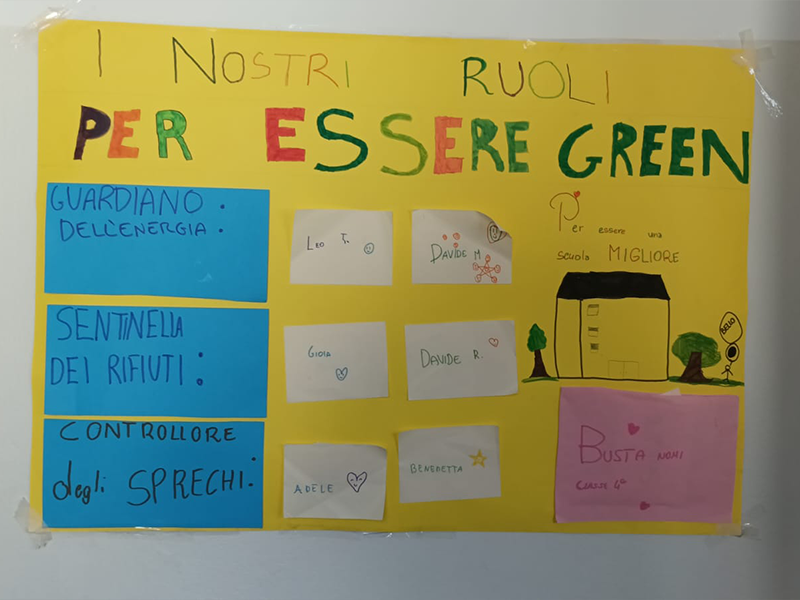 I NOSTRI RUOLI
PER ESSERE GREEN
GUARDIANO :
DELL'ENERGIA :
LEO T.
DAVIDE M
Per essere una
scuola MIGLIORE
BELLO
SENTINELLA
DEI RIFIUTI :
GIOIA
DAVIDE R.
CONTROLLORE
degli SPRECHI :
ADELE
BENEDETTA
BUSTA NOMI
CLASSE 4°